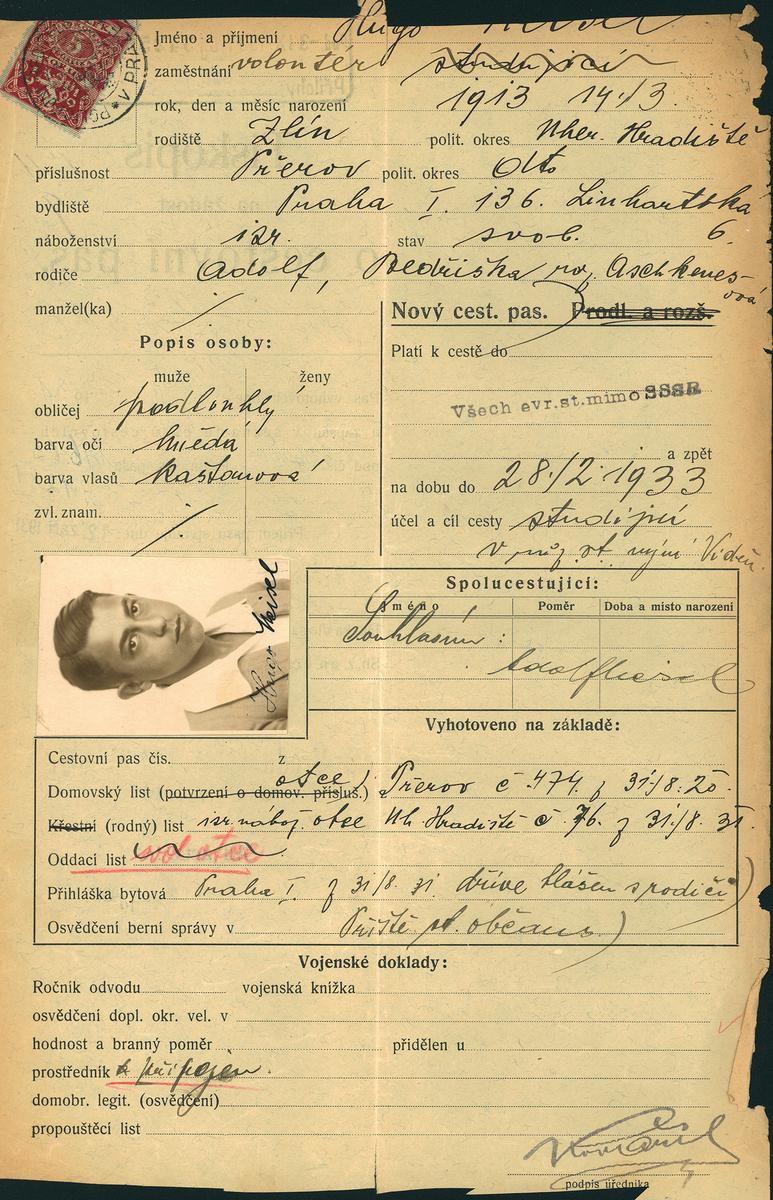 Jméno a příjmení Hugo
zaměstnání volontér studující
rok, den a měsíc narození 1913 14./3.
rodiště Zlín polit. okres Uher. Hradiště
příslušnost Přerov polit. okres dtto
bydliště Praha I. 136. Linhartská
náboženství isr. stav svob. 6.
rodiče Adolf, Bedřiška roz. Aschkenes-
ová
manžel(ka) /
Nový cest. pas. Prodl. a rozš.
Popis osoby:
Platí k cestě do
muže ženy
Všech evr.st.mimo SSSR
obličej podlouhlý
barva očí hnědá
a zpět
barva vlasů kaštanová
na dobu do 28./2. 1933
zvl. znam. /
účel a cíl cesty studijní
Vídeň
Hugo Meisel
Spolucestující:
Jméno Poměr Doba a místo narození
Souhlasím:
Adolf Meisel
Vyhotoveno na základě:
Cestovní pas čís. z
otce)
Domovský list (potvrzení o domov. přísluš.) Přerov č. 474. z 31./8. 25.
Křestní (rodný) list isr. nábož. otce Uh. Hradiště č. 76. z 31./8. 31.
Oddací list
Přihláška bytová Praha I. z 31/8. 31. dříve hlášen s rodiči)
Osvědčení berní správy v Příště st. občans.)
Vojenské doklady:
Ročník odvodu vojenská knížka
osvědčení dopl. okr. vel. v
hodnost a branný poměr přidělen u
prostředník připojen.
domobr. legit. (osvědčení)
propouštěcí list
podpis úředníka